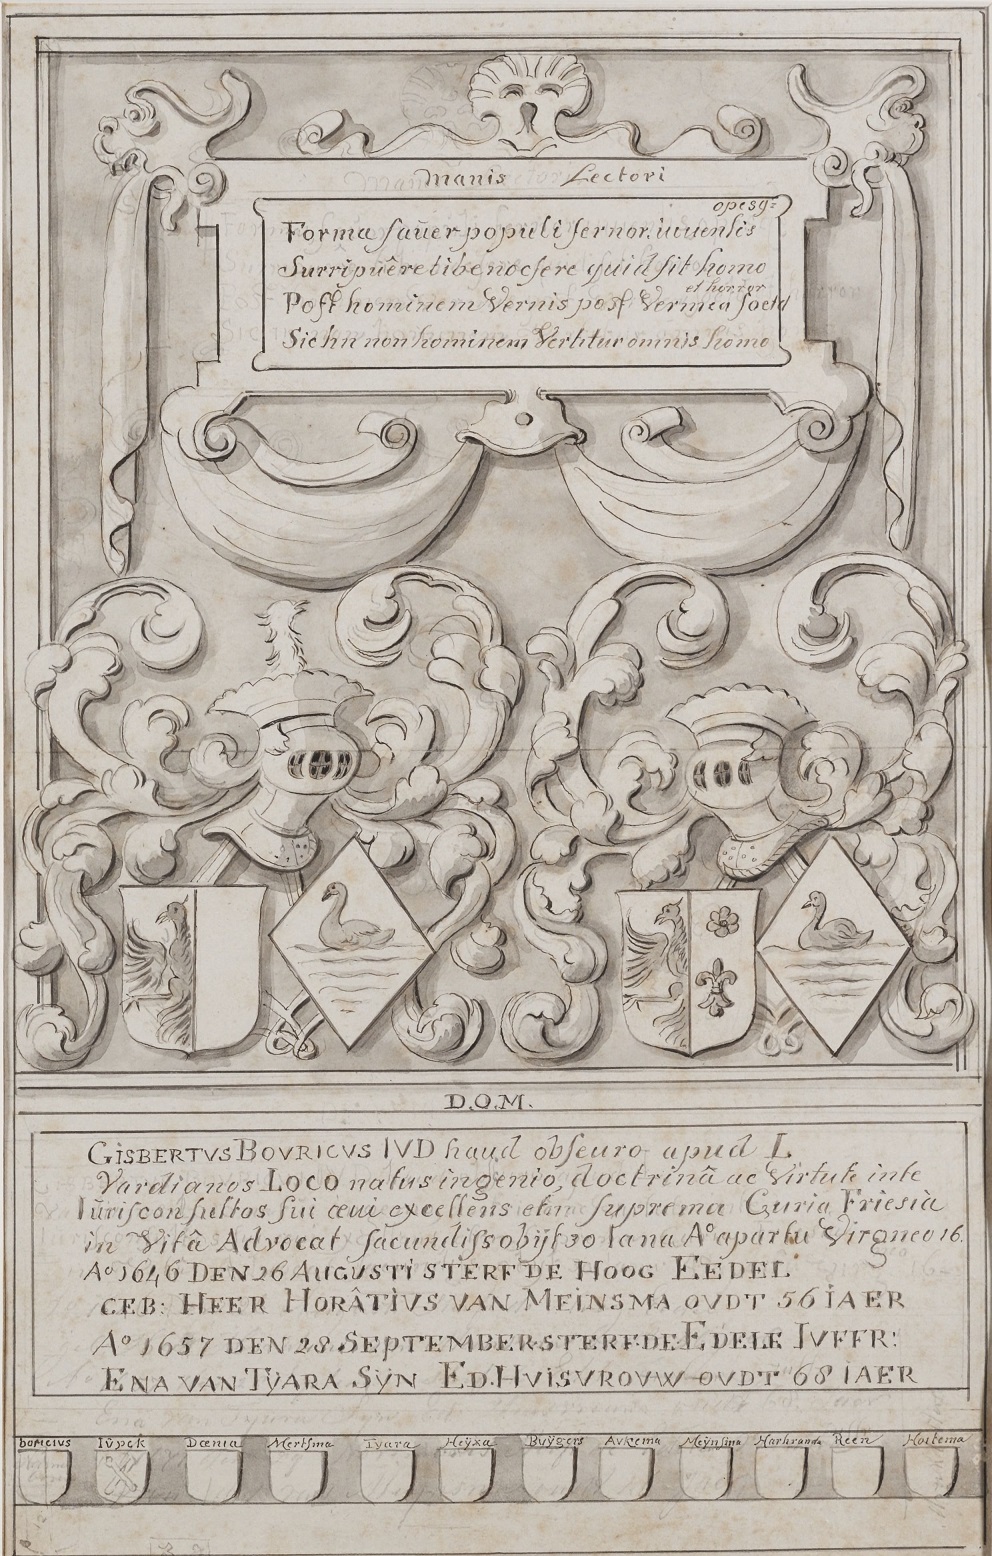 Manis Lectori
opesq=
Forma faver populi fernor. iuuenlis
Surripuêre tibi nocsere quid sit homo
et horror
Post hominem Vermis post Vermem foetd
Sichn non hominem Vertitur omnis homo
D.O.M.
GISBERTVS BOVRICVS IVD haud obscuro apud L
Vardianos LOCO natus ingenio, doctrinâ ac Virtute inte
Iûrisconsultos sui œui excellens etin suprema Curia Friesiæ
in Vitâ Advocat facundiss obijt 30 Iana A° apartu Virgneo 16.
A° 1646 DEN 26 AUGUSTI STERF DE HOOG EEDEL
GEB: HEER HORÂTIVS VAN MEINSMA OVDT 56 IAER
A° 1657 DEN 28 SEPTEMBER STERF DE EDELE IVFFR:
ENA VAN TŸARA SŸN ED. HVISVROVW OVDT 68 IAER
boricius Iÿpck Dœnia Mertsma Tyara Heÿxa Buÿgers Avkema Meÿnsma Harkranda Reen Hoitema